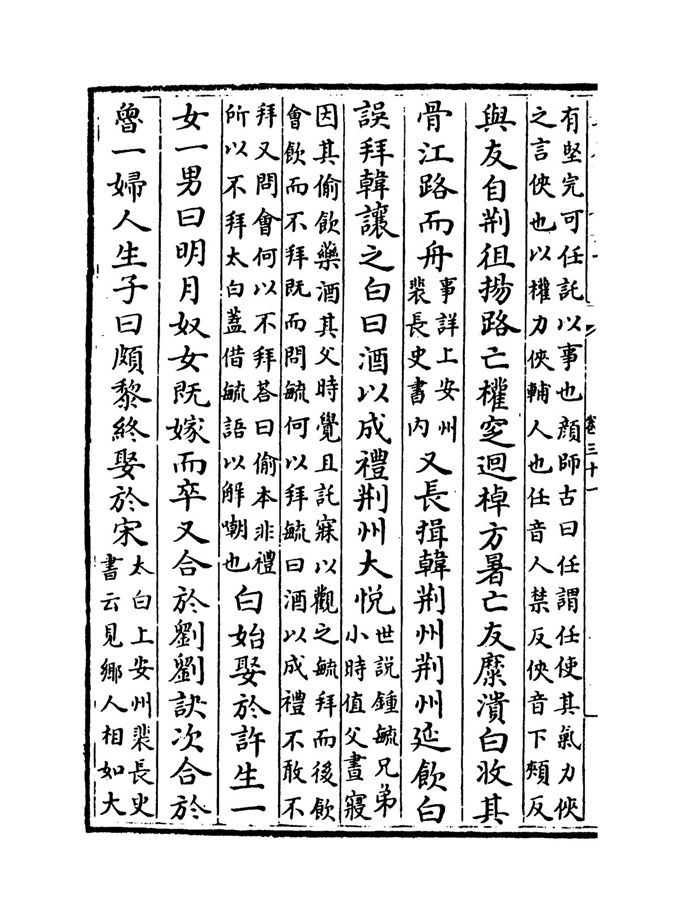 有堅完可任託以事也顔師古曰任謂任使其氣力俠
之言俠也以權力俠輔人也任音人禁反俠音下頰反
與友自荆徂揚路亡權窆迴棹方暑亡友糜潰白收其
骨江路而舟
事詳上安州
裴長史書内
又長揖韓荆州荆州延飲白
誤拜韓讓之白曰酒以成禮荆州大悦
世説鍾毓兄弟
小時值父晝寢
因其偷飲藥酒其父時覺且託寐以觀之毓拜而後飲
會飲而不拜既而問毓何以拜毓曰酒以成禮不敢不
拜又問會何以不拜荅曰偷本非禮
所以不拜太白蓋借毓語以解嘲也
白始娶於許生一
女一男曰明月奴女既嫁而卒又合於劉劉訣次合於
魯一婦人生子曰頗黎終娶於宋
太白上安州裴長史
書云見鄉人相如大
卷三十一